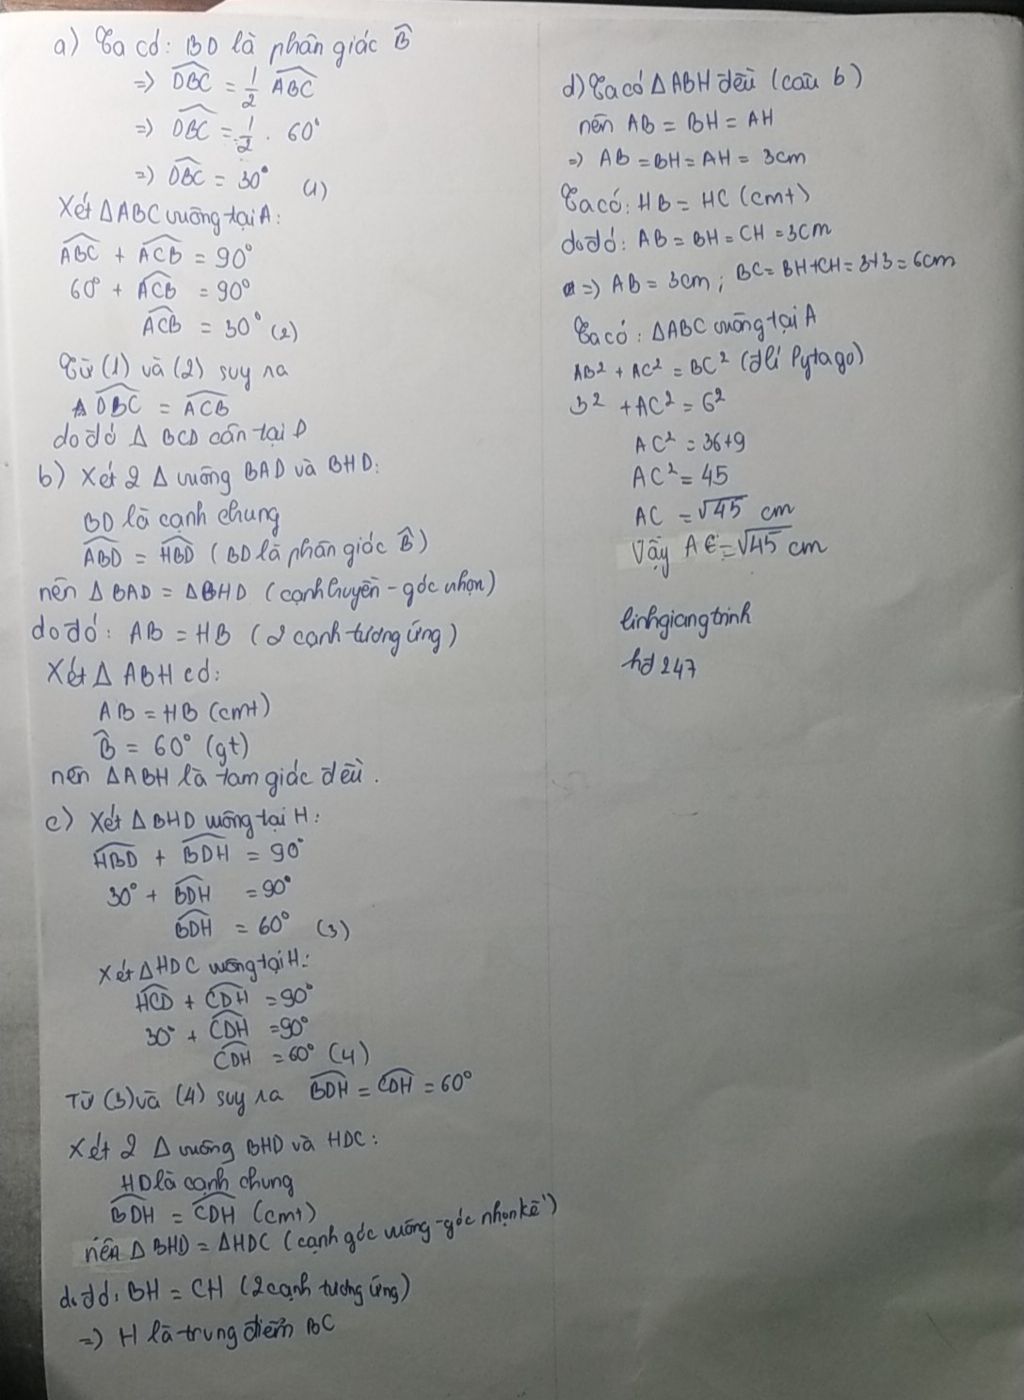 a) Ta có: BD là phân giác B̂
=> D̂BC = 1/2 ÂBC
=> D̂BC = 1/2 . 60°
=> D̂BC = 30° (1)
Xét ΔABC vuông tại A:
ÂBC + ÂCB = 90°
60° + ÂCB = 90°
ÂCB = 30° (2)
Từ (1) và (2) suy ra
D̂BC = ÂCB
do đó Δ BCD cân tại D
b) Xét 2 Δ vuông BAD và BHD:
BD là cạnh chung
ÂBD = ĤBD (BD là phân giác B̂)
nên Δ BAD = ΔBHD (cạnh huyền - góc nhọn)
do đó: AB = HB (2 cạnh tương ứng)
Xét Δ ABH có:
AB = HB (cmt)
B̂ = 60° (gt)
nên ΔABH là tam giác đều.
c) Xét ΔBHD vuông tại H:
ĤBD + B̂DH = 90°
30° + B̂DH = 90°
B̂DH = 60° (3)
Xét ΔHDC vuông tại H:
ĤCD + ĈDH = 90°
30° + ĈDH = 90°
ĈDH = 60° (4)
Từ (3) và (4) suy ra B̂DH = ĈDH = 60°
Xét 2 Δ vuông BHD và HDC:
HD là cạnh chung
B̂DH = ĈDH (cmt)
nên Δ BHD = ΔHDC (cạnh góc vuông - góc nhọn kề)
do đó: BH = CH (2 cạnh tương ứng)
=> H là trung điểm BC
d) Ta có Δ ABH đều (câu b)
nên AB = BH = AH
=> AB = BH = AH = 3cm
Ta có: HB = HC (cmt)
do đó: AB = BH = CH = 3cm
=> AB = 3cm ; BC = BH+CH = 3+3 = 6cm
Ta có: ΔABC vuông tại A
AB² + AC² = BC² (đlí Pytago)
3² + AC² = 6²
AC² = 36+9
AC² = 45
AC = √45 cm
Vậy AC = √45 cm
linhgiangtrinh
hđ 247